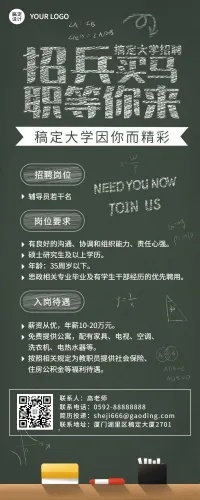 搞定设计 YOUR LOGO
搞定大学招聘
招兵买马
职等你来
搞定大学因你而精彩
招聘岗位
辅导员若干名
NEED YOU NOW
JOIN US
岗位要求
有良好的沟通、协调和组织能力、责任心强。
硕士研究生及以上学历。
年龄:35周岁以下。
思政相关专业毕业及有学生干部经历的优先聘用。
入岗待遇
薪资从优,年薪10-20万元。
免费提供公寓,配有家具、电视、空调、
洗衣机、电热水器等。
按照相关规定为教职员提供社会保险、
住房公积金等福利待遇。
联系人:高老师
联系电话:0592-88888888
简历投递:sheji666@gaoding.com
联系地址:厦门湖里区稿定大厦2701